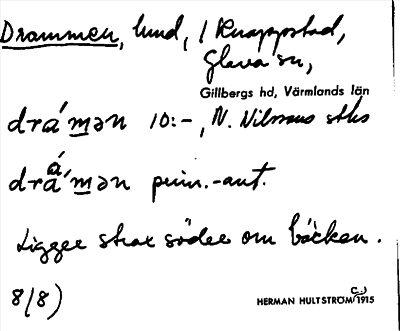 Drammen, lund, / Knappstad,
Glava sn,
Gillbergs hd, Värmlands län
dra´mən 10:-, N. Nilssons sths
drå´mən prim.-ant.
Ligger strax söder om bäcken.
8/8)
HERMAN HULTSTRÖM 1915